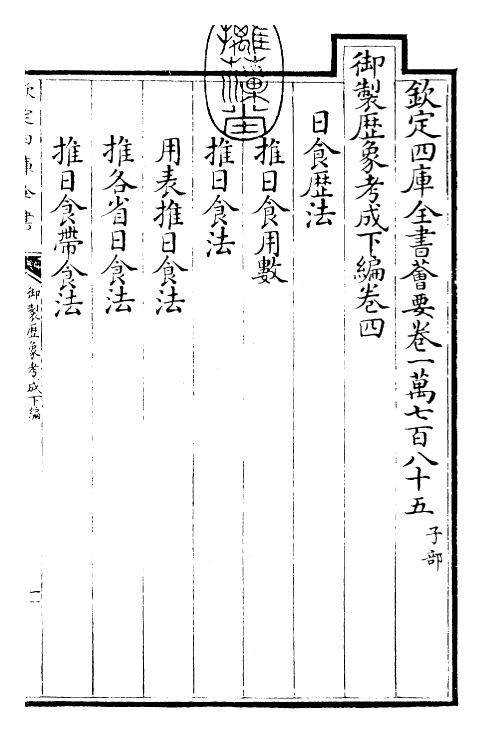 欽定四庫全書薈要卷一萬七百八十五 子部
御製歴象考成下編卷四
日食歴法
推日食用數
推日食法
用表推日食法
推各省日食法
推日食帶食法
欽定四庫全書
御製歴象考成下編
一